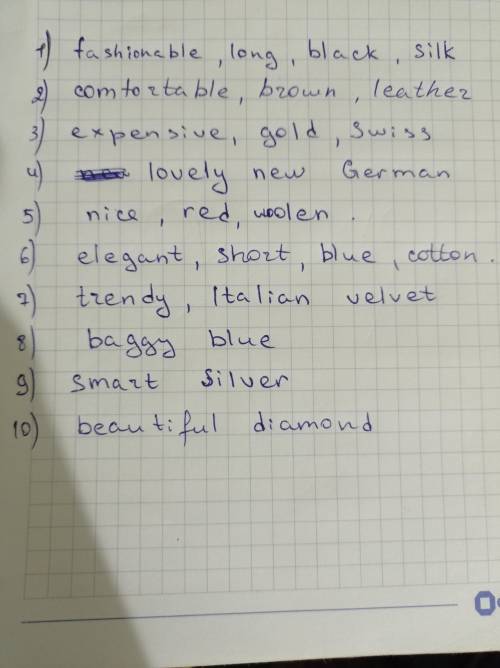 1) fashionable, long, black, silk
2) comfortable, brown, leather
3) expensive, gold, Swiss
4) lovely new German
5) nice, red, woolen.
6) elegant, short, blue, cotton.
7) trendy, Italian velvet
8) baggy blue
9) smart silver
10) beautiful diamond